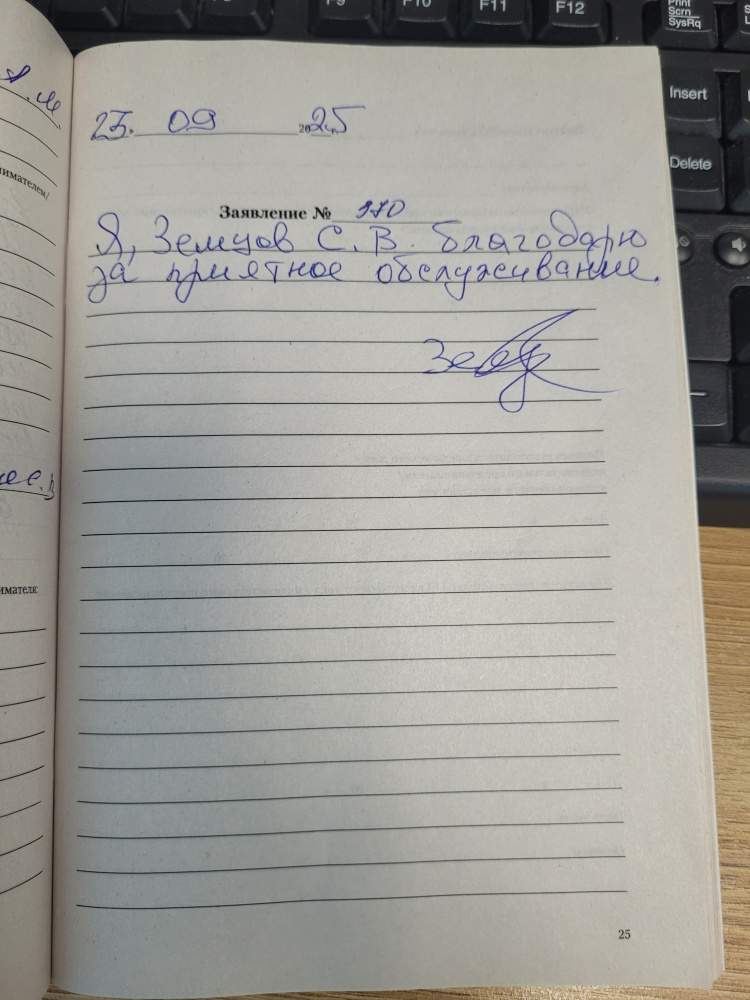 F9 F10 F11 F12 Print Scrn SysRq
Insert
Delete
нимателем/
имателя:
09 2025
Заявление № 370
Я, Земцов С. В. благодарю
за приятное обслуживание.
25